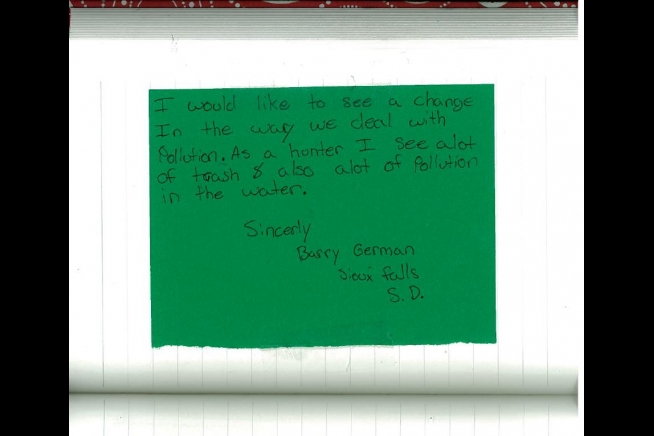 I would like to see a change
In the way we deal with
Pollution. As a hunter I see alot
of trash & also alot of Pollution
in the water.
Sincerly
Barry German
Sioux falls
S.D.